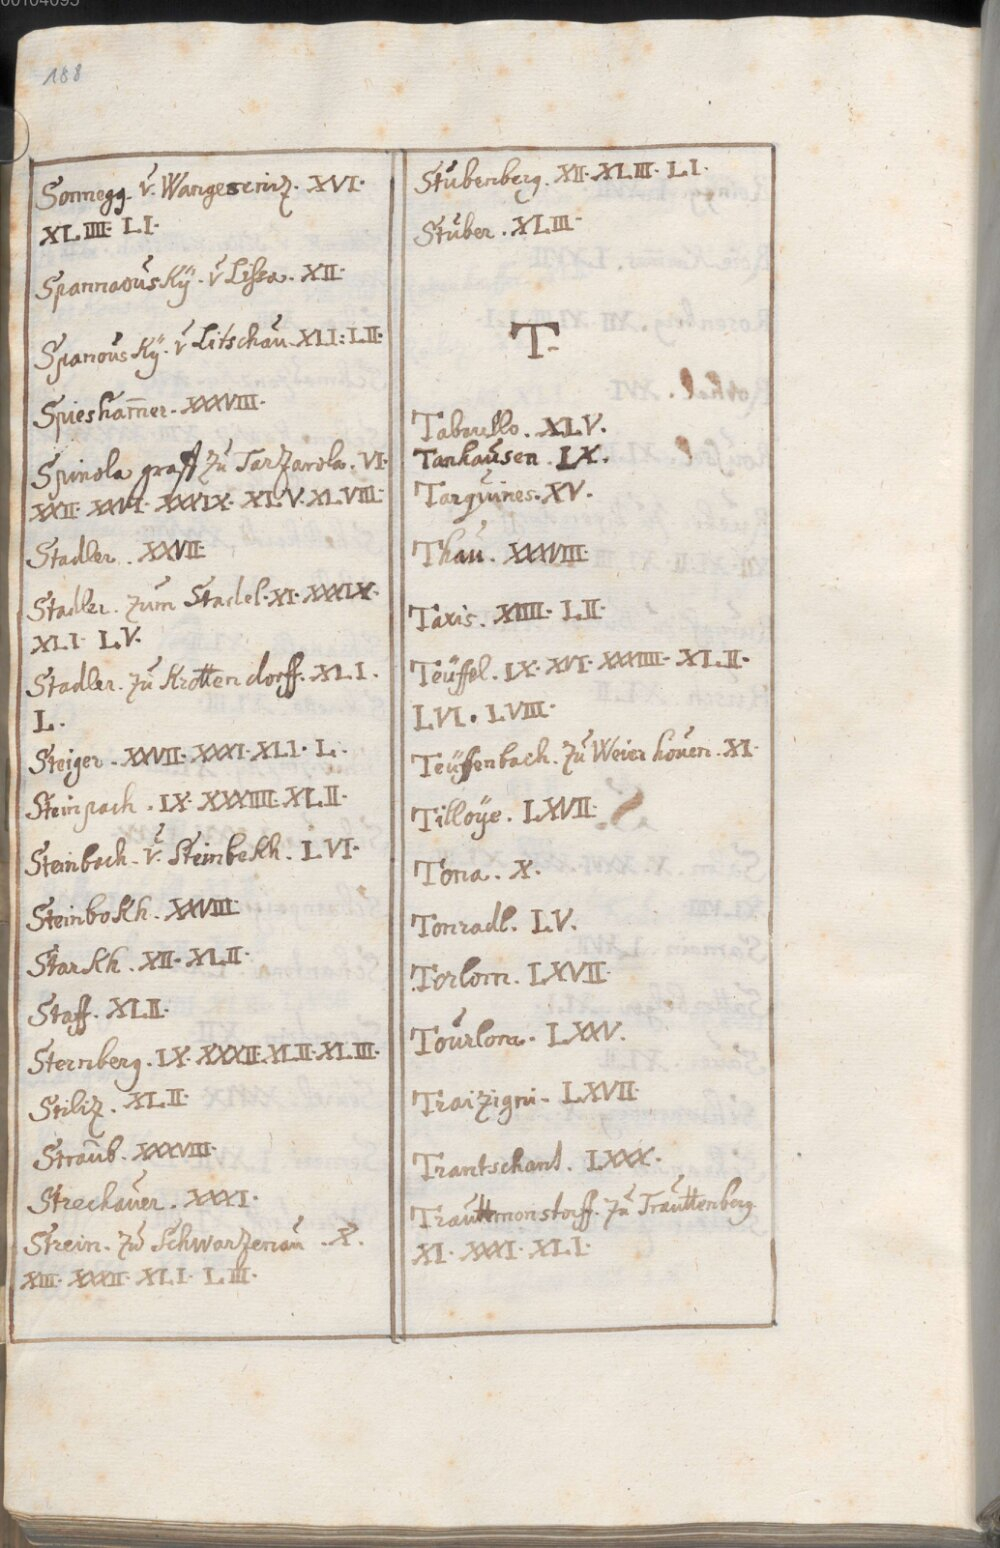 00104095
188
Sonnegg. v. Wangescriz. XVI.
XLIIII. LI.
Spannaousky. v Lissa. XII.
Spanousky. v Litschau. XLI. LII.
Spieshamer. XXXVIII.
Spinola graff zu Tarzarola. VI.
XXII. XXVI. XXXIX. XLV. XLVIII.
Stadler. XXVII.
Stadler. zum Stadel. XI. XXXIX.
XLI. LV.
Stadler. zu Krottendorff. XLI.
L.
Steiger. XXVII. XXXI. XLI. L.
Steinpach. IX. XXXIIII. XLII.
Steinbach. v. Steinbekh. LVI.
Steinbokh. XXVIII.
Starkh. XII. XLII.
Staff. XLII.
Sternberg. IX. XXXII. XLII. XLIII.
Stiliz. XLII.
Straub. XXXVIII.
Strechauer. XXXI.
Strein. zu Schwarzenau. X.
XIII. XXXII. XLI. LIII.
Stubenberg. XII. XLIII. LI.
Stuber. XLIII.
T.
Tabarello. XLV.
Tanhausen. IX.
Targuines. XV.
Thau. XXXVIII.
Taxis. XIIII. LII.
Teüffel. IX. XVI. XXXIIII. XLII.
LVI. LVIII.
Teüffenbach. zu Weierhouen. XI.
Tilloÿe. LXVII.
Tona. X.
Tonradl. LV.
Torlom. LXVII.
Tourlona. LXXV.
Traizigni. LXVII.
Trantschant. LXXX.
Trauttmonstorff. zu Trauttenberg.
XI. XXXI. XLI.